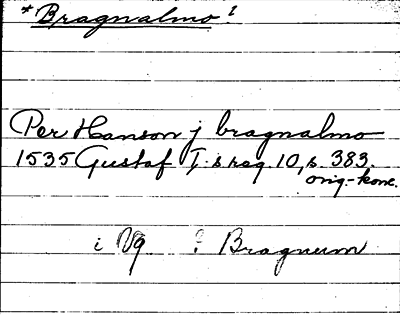 *Bragnalmo?
Per Hanson j bragnalmo
1535 Gustaf I:s reg. 10, s. 383.
orig.-konc.
i Vg. ? Bragnum